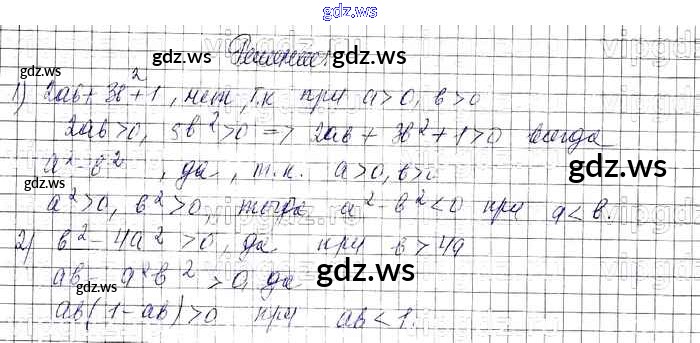 gdz.ws
Решение:
gdz.ws gdz.ws
1) 2ab + 3b² + 1, нет, т.к при a>0, b>0
2ab>0, 5b²>0 => 2ab + 3b² + 1>0 всегда
gdz.ws
a² - b², да, т.к. a>0, b>0
gdz.ws gdz.ws
a²>0, b²>0, тогда a² - b²<0 при a<b.
2) b² - 4a²>0, да при b>4a
gdz.ws
ab - a²b²>0, да
gdz.ws gdz.ws
ab(1-ab)>0 при ab<1.